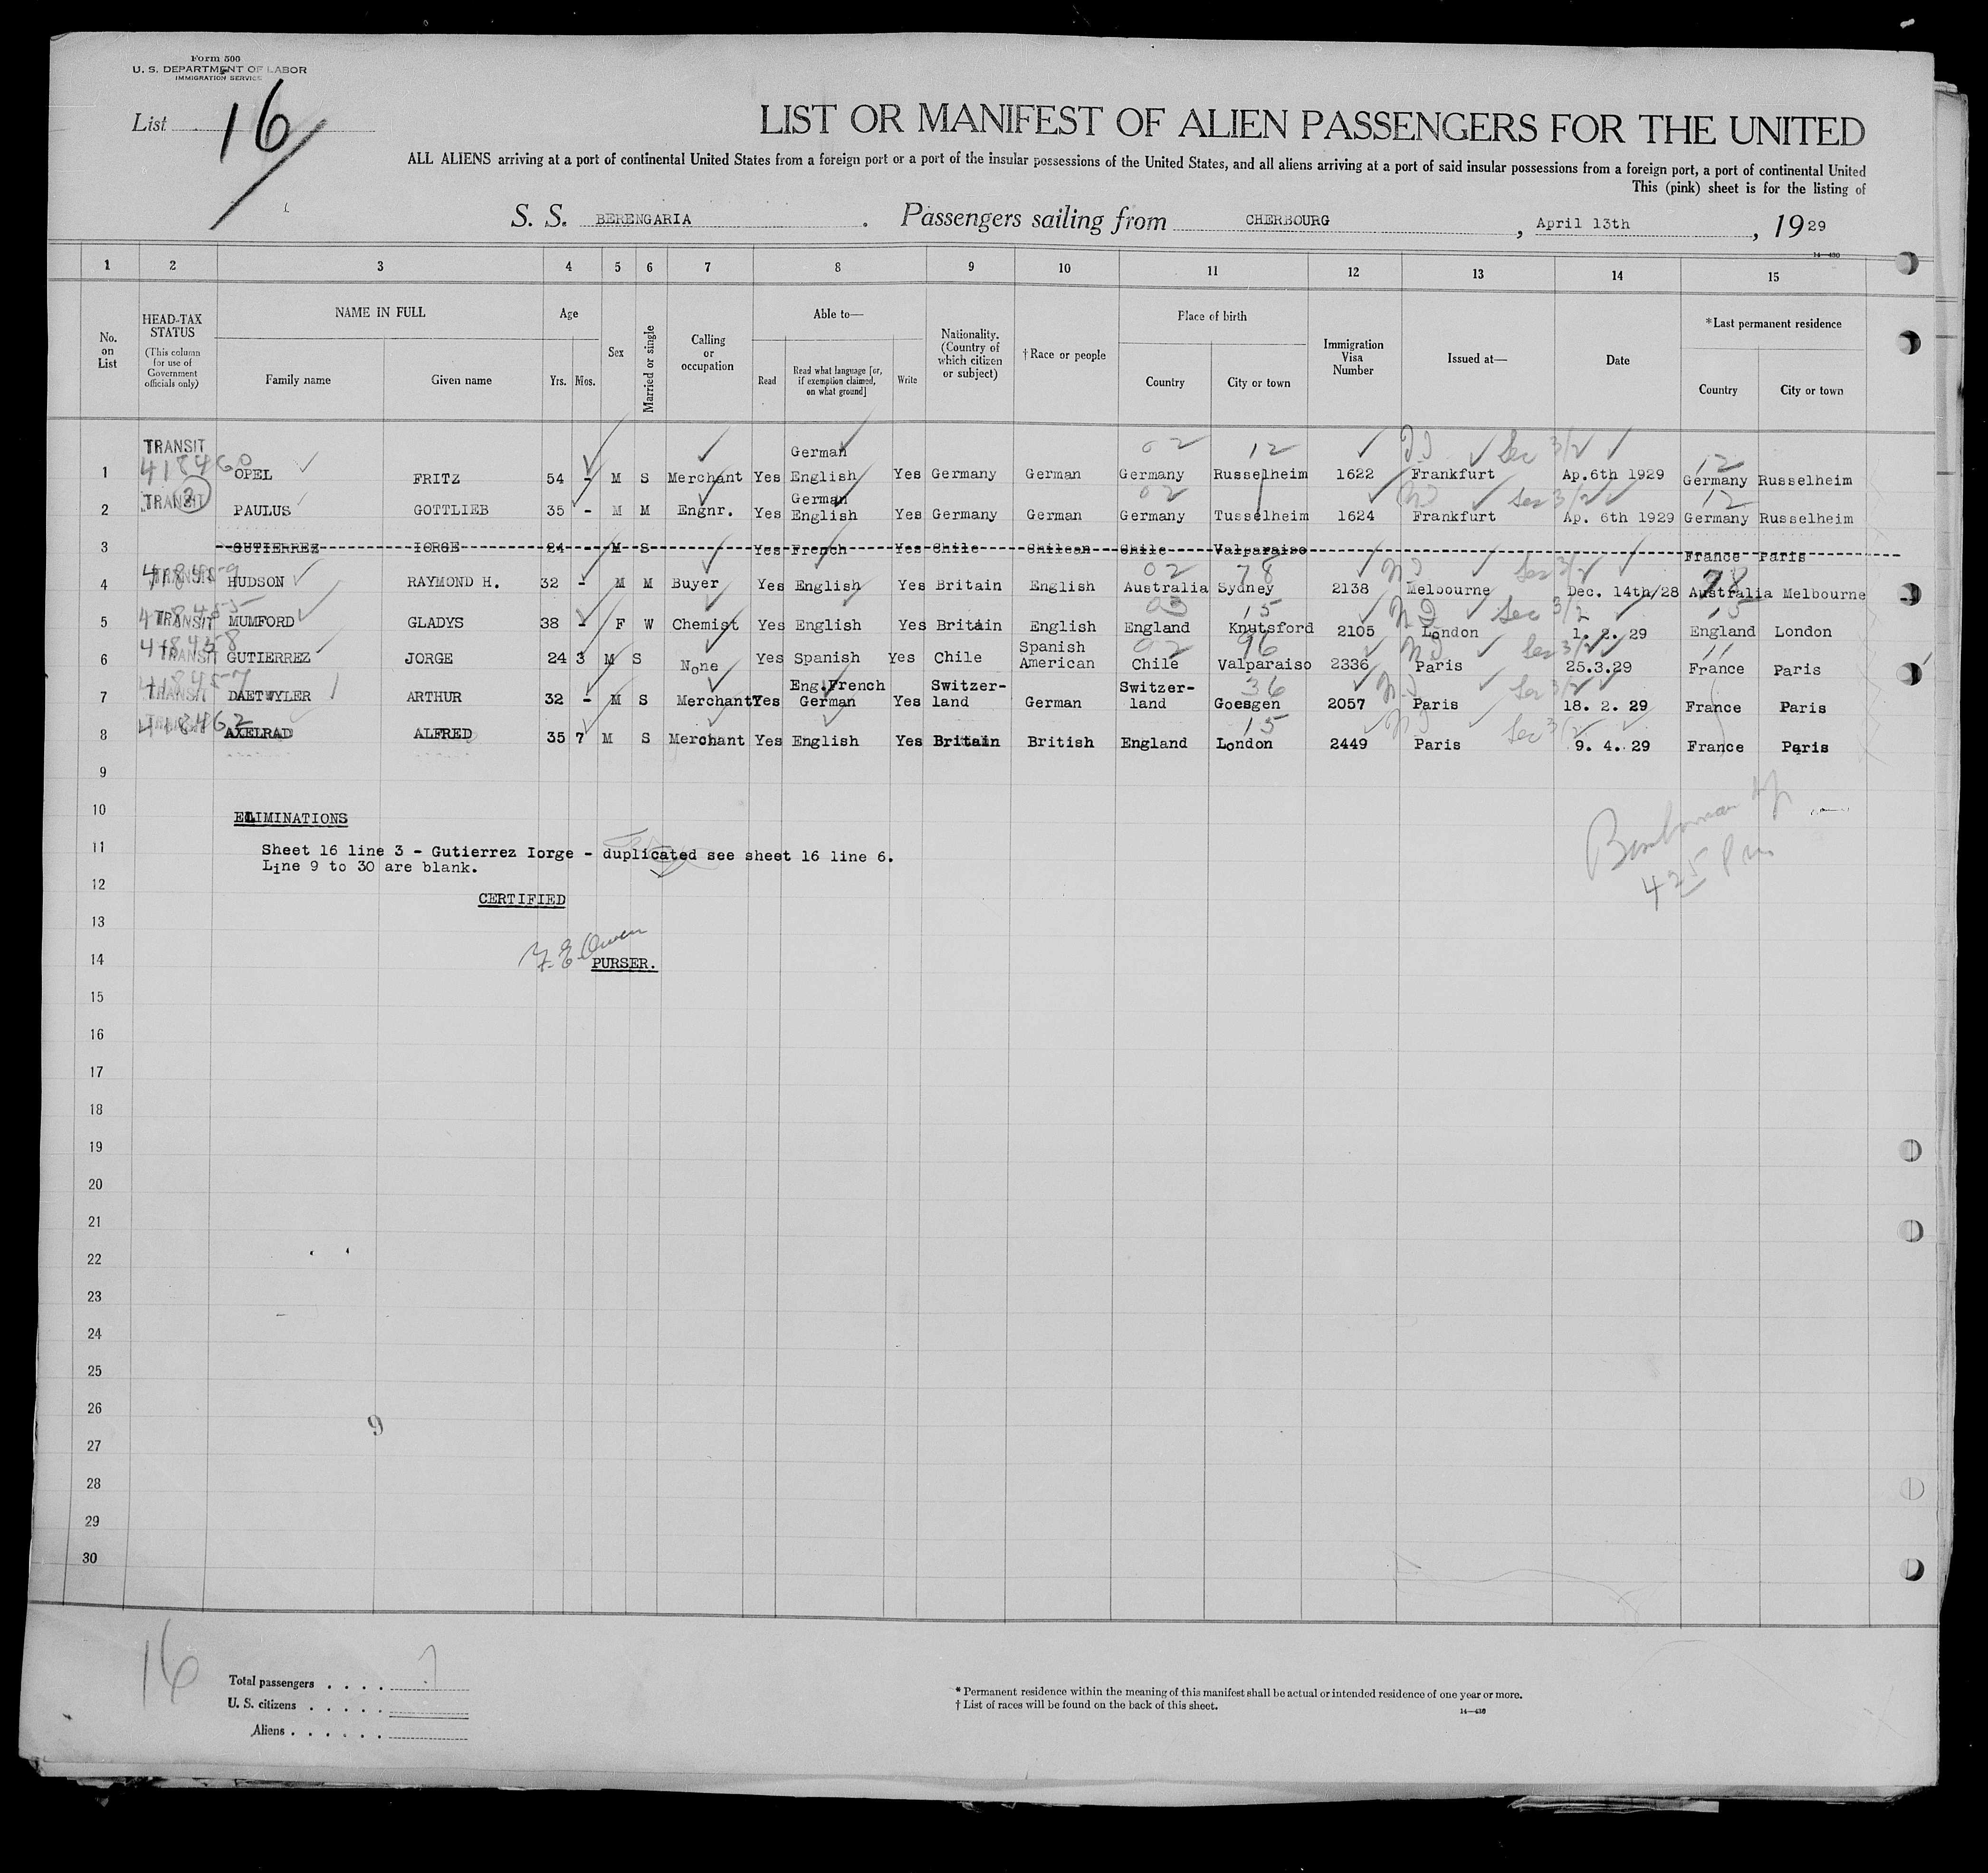 Form 500
U. S. DEPARTMENT OF LABOR
IMMIGRATION SERVICE
List 16
LIST OR MANIFEST OF ALIEN PASSENGERS FOR THE UNITED
ALL ALIENS arriving at a port of continental United States from a foreign port or a port of the insular possessions of the United States, and all aliens arriving at a port of said insular possessions from a foreign port, a port of continental United
This (pink) sheet is for the listing of
S. S. BERENGARIA . Passengers sailing from CHERBOURG , April 13th , 1929
14—430
1 2 3 4 5 6 7 8 9 10 11 12 13 14 15
No. on List
HEAD-TAX STATUS
(This column for use of Government officials only)
NAME IN FULL
Family name Given name
Age
Yrs. Mos.
Sex
Married or single
Calling or occupation
Able to—
Read
Read what language [or, if exemption claimed, on what ground]
Write
Nationality. (Country of which citizen or subject)
†Race or people
Place of birth
Country City or town
Immigration Visa Number
Issued at—
Date
*Last permanent residence
Country City or town
02 12 Sec 3/2
1 TRANSIT 418460 OPEL FRITZ 54 - M S Merchant Yes German English Yes Germany German Germany Russelheim 1622 Frankfurt Ap.6th 1929 12 Germany Russelheim
02 Sec 3/2 12
2 TRANSIT 2 PAULUS GOTTLIEB 35 - M M Engnr. Yes German English Yes Germany German Germany Tusselheim 1624 Frankfurt Ap. 6th 1929 Germany Russelheim
3 GUTIERREZ IORGE 24 M S Yes French Yes Chile Chilean Chile Valparaiso France Paris
02 78 Sec 3/2
4 TRANSIT 418459 HUDSON RAYMOND H. 32 - M M Buyer Yes English Yes Britain English Australia Sydney 2138 Melbourne Dec. 14th/28 78 Australia Melbourne
03 15 N I Sec 3/2 15
5 TRANSIT 418455 MUMFORD GLADYS 38 - F W Chemist Yes English Yes Britain English England Knutsford 2105 London 1. 2. 29 England London
02 96 N I Sec 3/2 11
6 TRANSIT 418458 GUTIERREZ JORGE 24 3 M S None Yes Spanish Yes Chile Spanish American Chile Valparaiso 2336 Paris 25.3.29 France Paris
36 N I Sec 3/2
7 TRANSIT 418457 DAETWYLER ARTHUR 32 - M S Merchant Yes Eng.French German Yes Switzer-land German Switzer-land Goesgen 2057 Paris 18. 2. 29 France Paris
15 N I Sec 3/2
8 418462 AXELRAD ALFRED 35 7 M S Merchant Yes English Yes Britain British England London 2449 Paris 9. 4. 29 France Paris
9
10 ELIMINATIONS
11 Sheet 16 line 3 - Gutierrez Iorge - duplicated see sheet 16 line 6.
Line 9 to 30 are blank.
425 Pm
12 CERTIFIED
13
14 PURSER.
15
16
17
18
19
20
21
22
23
24
25
26
9
27
28
29
30
16
Total passengers . . . . 7
U. S. citizens . . . . .
Aliens . . . . . .
* Permanent residence within the meaning of this manifest shall be actual or intended residence of one year or more.
† List of races will be found on the back of this sheet.
14—430